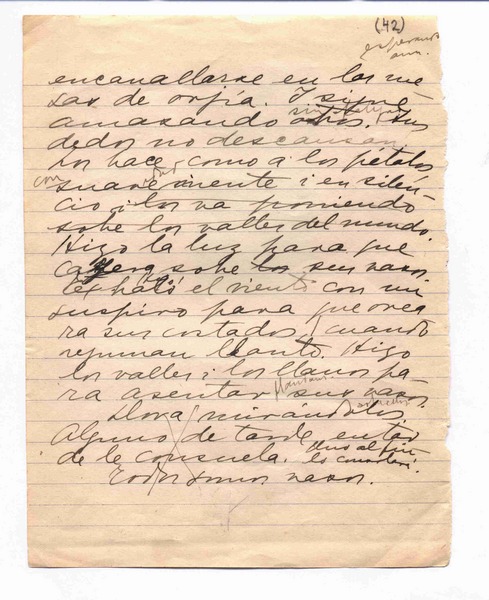 (42)
esperando
aun.
encanallarse en las me
sas de orjía. I sigue
amasando otros. Sus
dedos no descansan
los hace, como a los pétalos
con
suavemente i en silen
cio, i los va poniendo
sobe los valles del mundo.
Hizo la luz para que
cayera sobe los sus vasos
Exhaló el viento con un
suspiro para que orea
ra sus costados, cuando
rezuman llanto. Hizo
los valles i los llanos pa
ra asentar sus vasos.
Llora mirándolos.
Alguno de tarde en tar
de le consuela. Uno al fin
lo consolará.
Todos somos vasos.